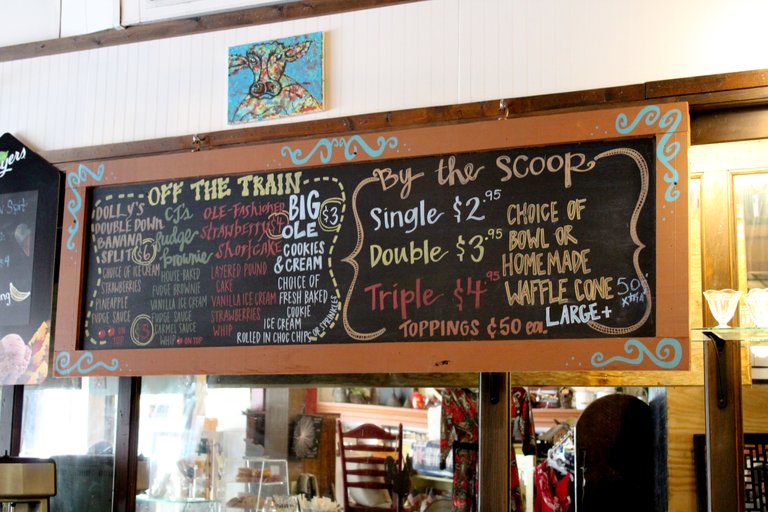 yers
OFF THE TRAIN
DOLLY'S
DOUBLE DOWN
BANANA
SPLIT $6
CHOICE OF ICE CREAM
STRAWBERRIES
PINEAPPLE
FUDGE SAUCE
ON TOP
CJ'S
fudge
Brownie
HOUSE-BAKED
FUDGE BROWNIE
VANILLA ICE CREAM
FUDGE SAUCE
CARMEL SAUCE
WHIP ON TOP
OLE-FASHIONED
STRAWBERRY
SHORTCAKE
LAYERED POUND
CAKE
VANILLA ICE CREAM
STRAWBERRIES
WHIP
BIG $3
OLE
COOKIES
& CREAM
CHOICE OF
FRESH BAKED
COOKIE
ICE CREAM
ROLLED IN CHOC CHIPS
OR SPRINKLES
By the SCOOP
Single $2.95
Double $3.95
Triple $4.95
TOPPINGS ¢50 ea.
CHOICE OF
BOWL OR
HOMEMADE
WAFFLE CONE
LARGE+